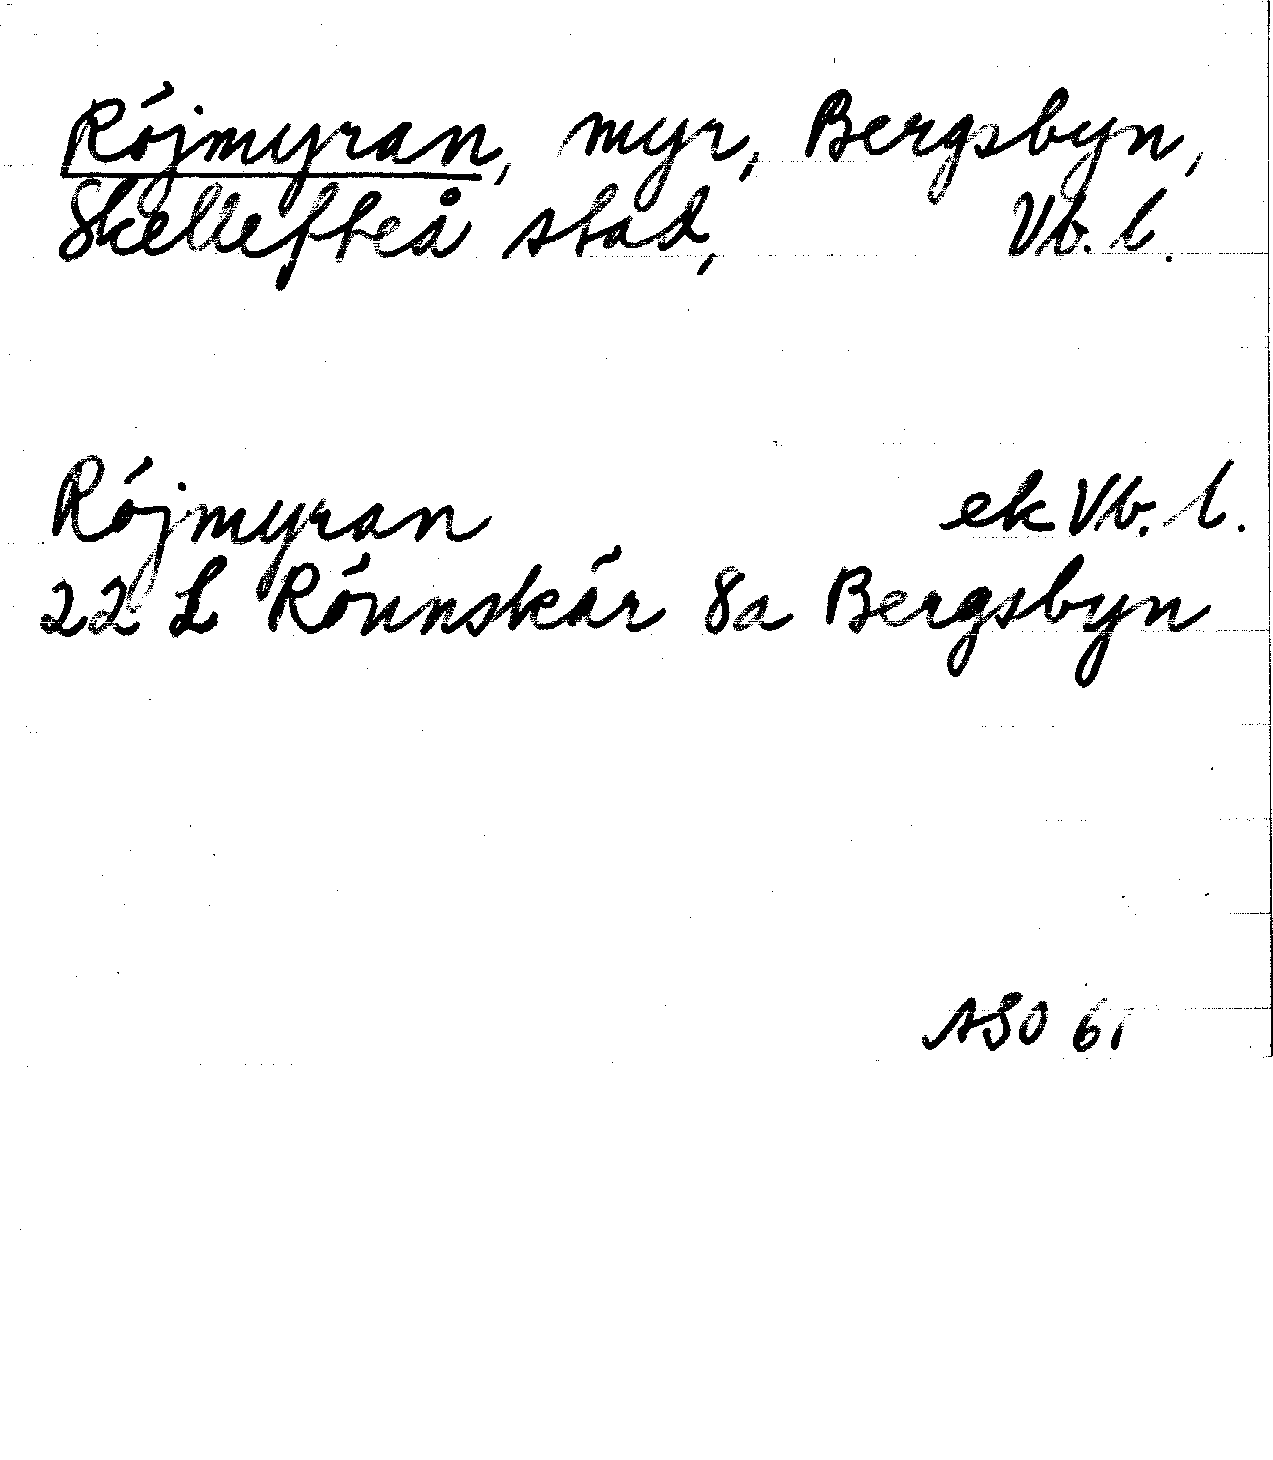 Röjmyran, myr, Bergsbyn,
Skellefteå stad, Vb. l.
Röjmyran ek Vb. l.
22 L Rönnskär 8a Bergsbyn
ASO 61